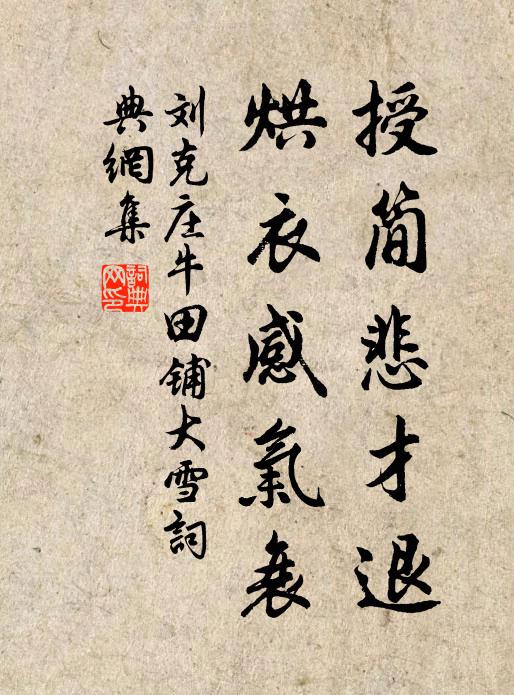 授简悲才退
烘衣感氣衰
刘克庄牛田铺大雪詞
典網集
詞典
网印